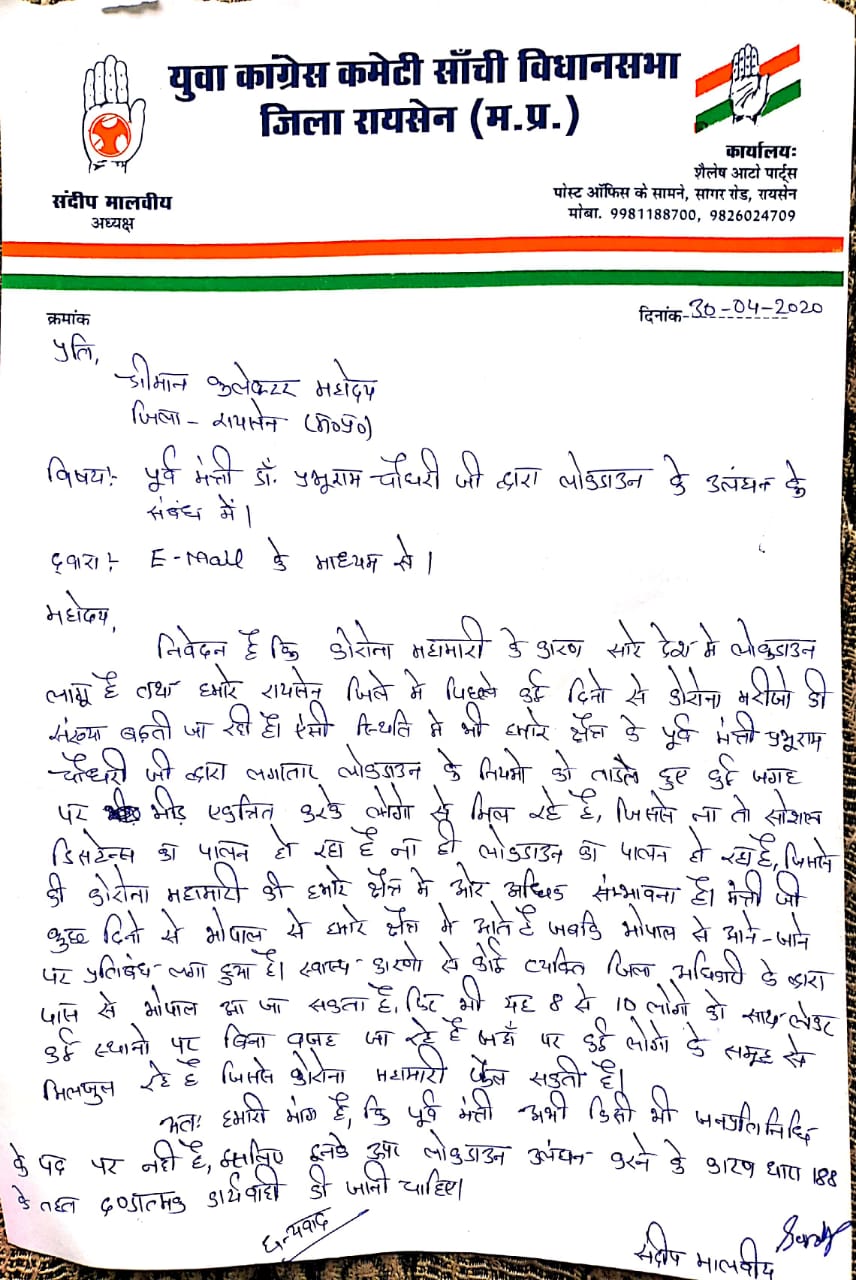 युवा कांग्रेस कमेटी साँची विधानसभा
जिला रायसेन (म.प्र.)
संदीप मालवीय
अध्यक्ष
कार्यालयः
शैलेष आटो पार्ट्स
पोस्ट ऑफिस के सामने, सागर रोड, रायसेन
मोबा. 9981188700, 9826024709
क्रमांक
दिनांक-30-04-2020
प्रति,
श्रीमान कलेक्टर महोदय
जिला - रायसेन (म०प्र०)
विषय:- पूर्व मंत्री डॉ. प्रभूराम चौधरी जी द्वारा लोकडाउन के उलंघन के
संबंध में।
द्वारा:- E-Mail के माध्यम से।
महोदय,
निवेदन है कि कोरोना महामारी के कारण सारे देश मे लोकडाउन
लागू है तथा हमारे रायसेन जिले मे पिछले कई दिनो से कोरोना मरीजो की
संख्या बढ़ती जा रही है। ऐसी स्थिति मे भी हमारे क्षेत्र के पूर्व मंत्री प्रभूराम
चौधरी जी द्वारा लगातार लोकडाउन के नियमो को तोडते हुए कई जगह
पर भीड़ एकत्रित करके लोगो से मिल रहे है, जिससे ना तो सोशल
डिसटेन्स का पालन हो रहा है ना ही लोकडाउन का पालन हो रहा है, जिससे
की कोरोना महामारी की हमारे क्षेत्र मे ओर अधिक संम्भावना है। मंत्री जी
कुछ दिनो से भोपाल से हमारे क्षेत्र मे आते है जबकि भोपाल से आने-जाने
पर प्रतिबंध लगा हुआ है। स्वास्थ कारणो से कोई व्यक्ति जिला अधिकारी के द्वारा
पास से भोपाल आ जा सकता है, फिर भी यह 8 से 10 लोगो को साथ लेकर
कई स्थानो पर बिना वजह जा रहे है जहाँ पर कई लोगो के समूह से
मिलजुल रहे है जिससे कोरोना महामारी फैल सकती है।
अतः हमारी मांग है, कि पूर्व मंत्री अभी किसी भी जनप्रतिनिधि
के पद पर नही है, इसलिए इनके ऊपर लोकडाउन उलंघन करने के कारण धारा 188
के तहत दण्डात्मक कार्यवाही की जानी चाहिए।
धन्यवाद
संदीप मालवीय